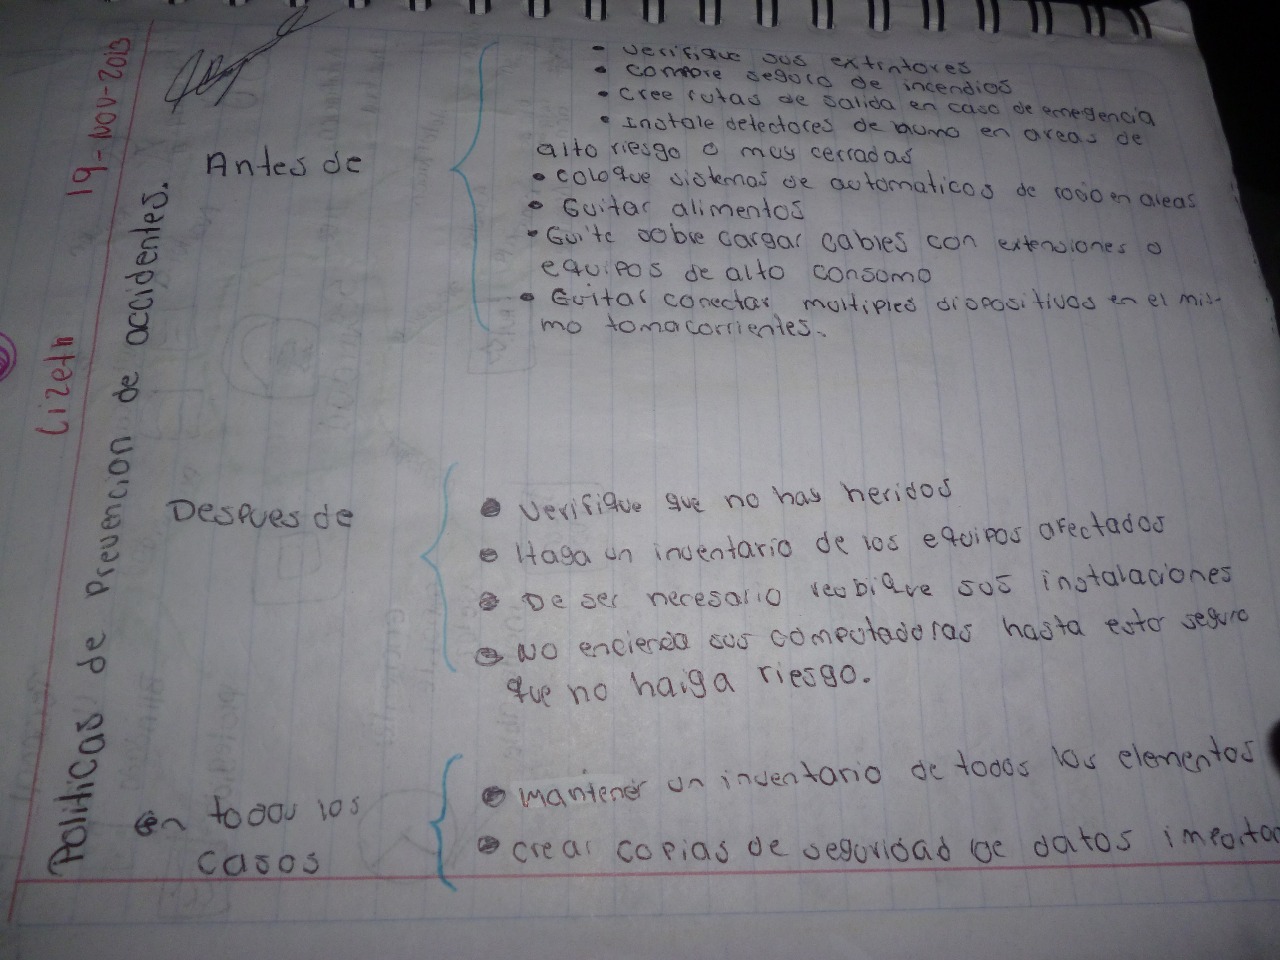 19-NOV-2013
Lizeth
Politicas de Prevencion de accidentes.
Antes de
• verifique sus extintores
• compre seguro de incendios
• cree rutas de salida en caso de emegencia
• Instale detectores de humo en areas de
alto riesgo o muy cerradas
• coloque sistemas de automaticos de rosio en areas
• Evitar alimentos
• Evite sobre cargar cables con extensiones o
equipos de alto consumo
• Evitar conectar multiples dispositivos en el mis-
mo tomacorrientes.
Despues de
• verifique que no hay heridos
• Haga un inventario de los equipos afectados
• De ser necesario reubique sus instalaciones
• No encienda sus computadoras hasta esto seguro
que no haiga riesgo.
en todos los
casos
• mantener un inventario de todos los elementos
• crear copias de seguridad de datos importa